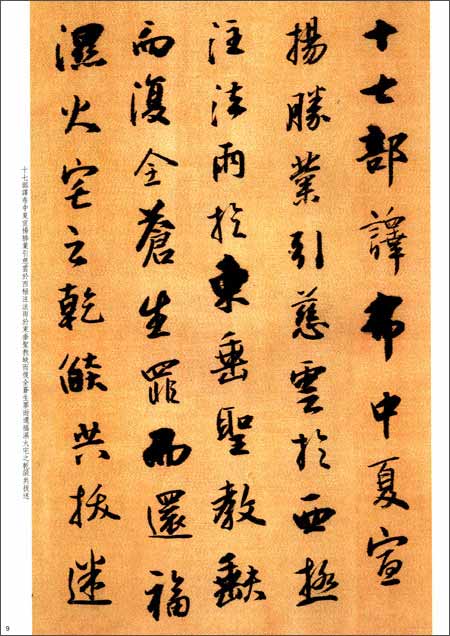 十七部譯布中夏宣
揚勝業引慈雲於西極
注法雨於東垂聖教缺
而復全蒼生罪而還福
濕火宅之乾燄共拔迷
十七部譯布中夏宣揚勝業引慈雲於西極注法雨於東垂聖教缺而復全蒼生罪而還福濕火宅之乾燄共拔迷
9